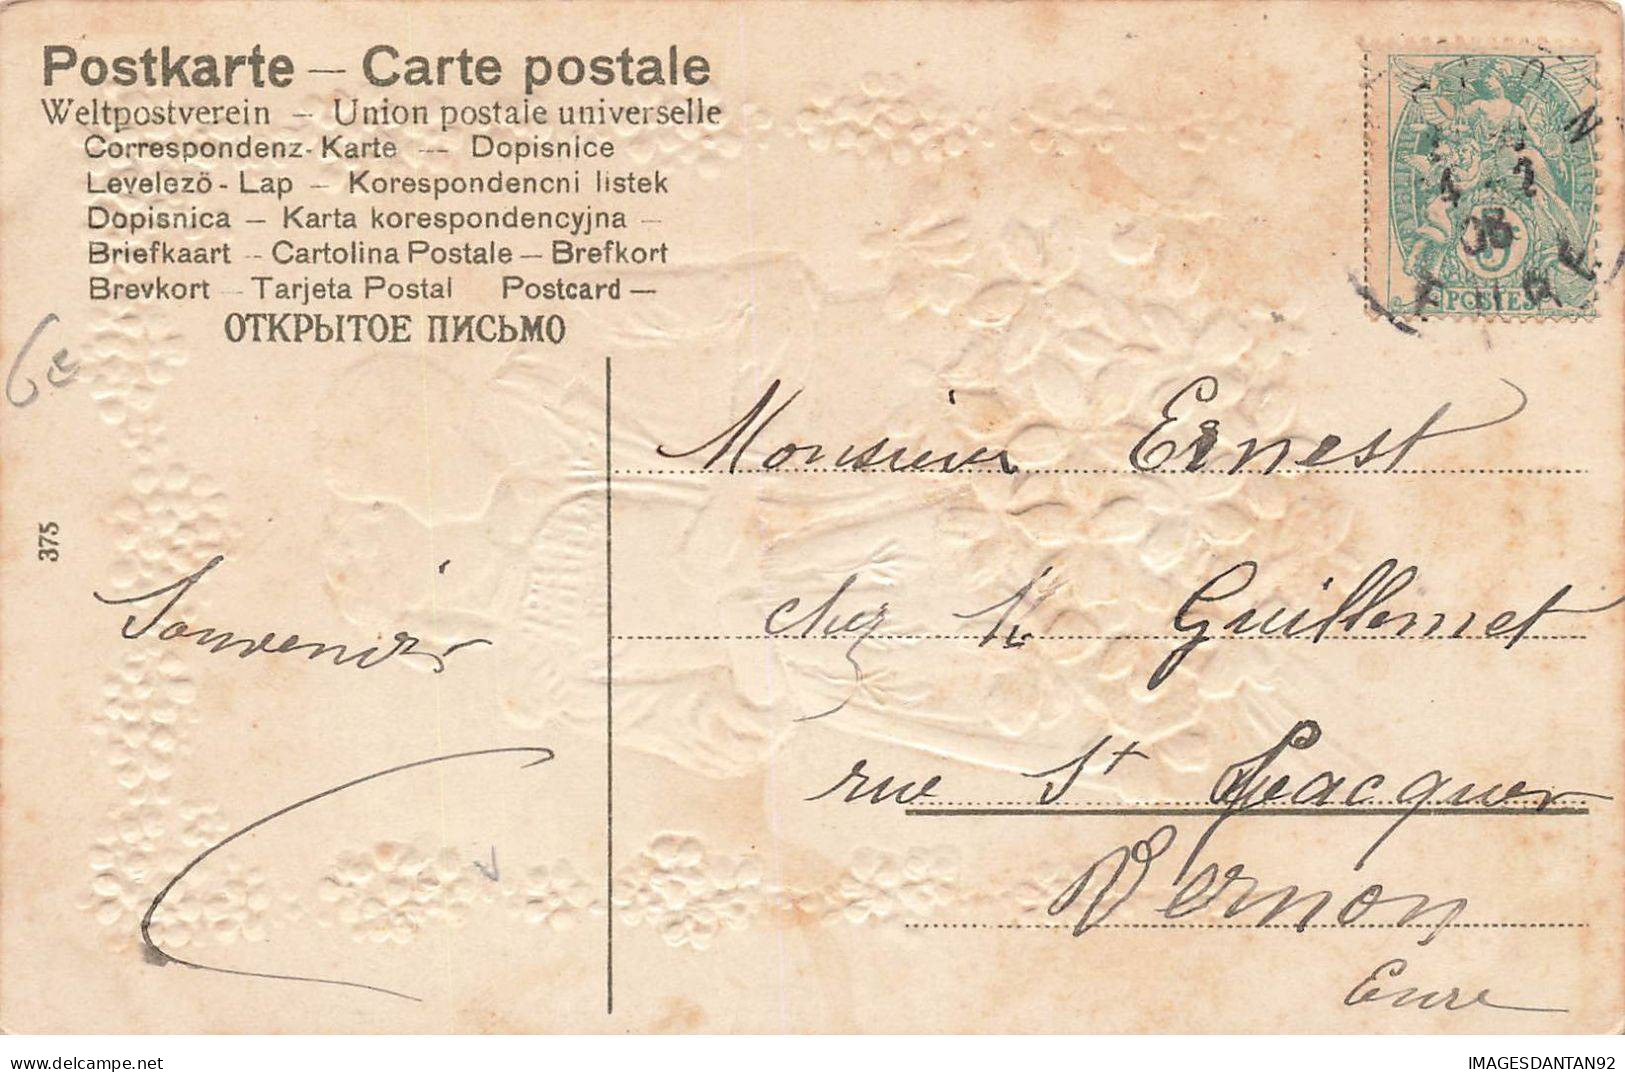 Postkarte – Carte postale
Weltpostverein – Union postale universelle
Correspondenz-Karte — Dopisnice
Levelezö-Lap – Korespondencni listek
Dopisnica — Karta korespondencyjna —
Briefkaart – Cartolina Postale — Brefkort
Brevkort – Tarjeta Postal Postcard —
ОТКРЫТОЕ ПИСЬМО
6€
375
POSTES
05
Monsieur Ernest
chez Mr Guillemet
Souvenir
rue St Jeacques
Vernon
Eure
IMAGESDANTAN92